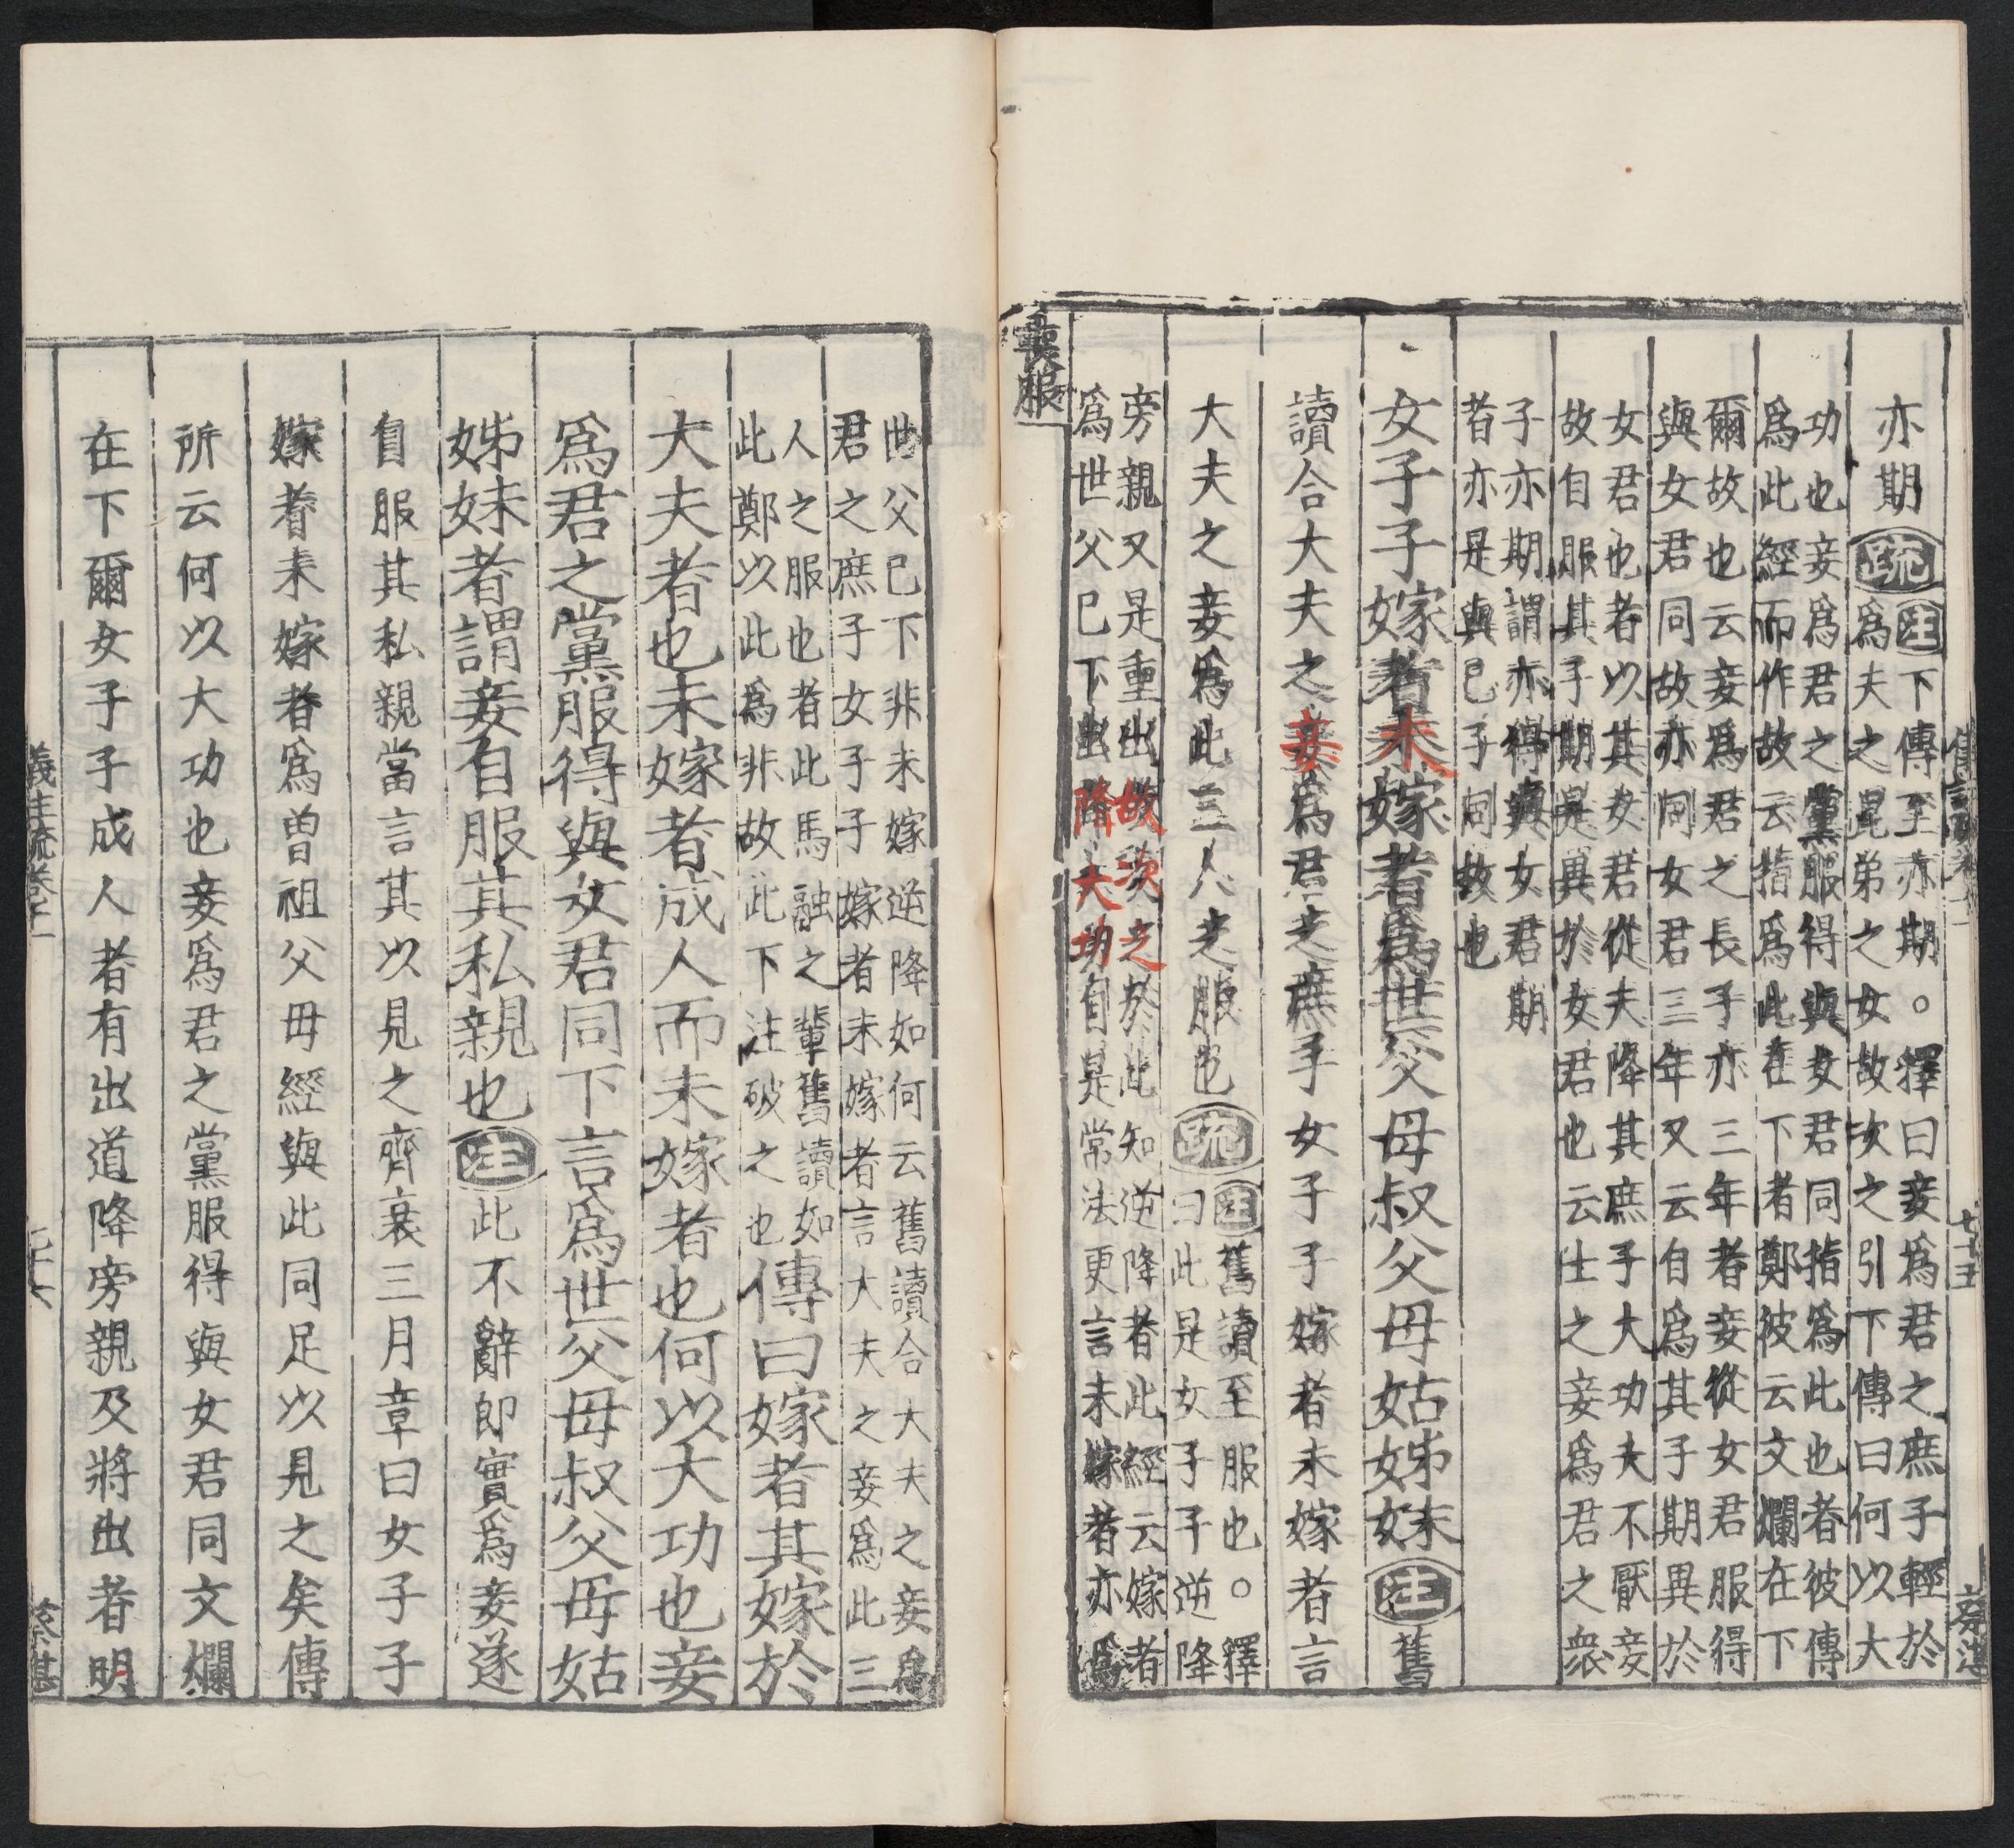 亦期疏註下傳至亦期。釋曰妾爲君之庶子輕於
爲夫之昆弟之女故次之引下傳曰何以大
功也妾爲君之黨服得與女君同指爲此也者彼傳
爲此經而作故云指爲此在下者鄭彼云文爛在下
爾故也云妾爲君之長子亦三年者妾從女君服得
與女君同故亦同女君三年又云自爲其子期異於
女君也者以其女君從夫降其庶子大功夫不厭妾
故自服其子期是異於女君也云仕之妾爲君之衆
子亦期謂亦得與女君期
者亦是與己子同故也
女子子嫁者未嫁者爲世父母叔父母姑姊妹註舊
讀合大夫之妾爲君之庶子女子子嫁者未嫁者言
大夫之妾爲此三人之服也疏註舊讀至服也。釋
曰此是女子子逆降
旁親又是重出故次之於此知逆降者此經云嫁者
爲世父已下出降大功自是常法更言未嫁者亦爲
喪服
世父已下非未嫁逆降如何云舊讀合大夫之妾爲
君之庶子女子子嫁者未嫁者言大夫之妾爲此三
人之服也者此馬融之輩舊讀如
此鄭以此爲非故此下注破之也
傳曰嫁者其嫁於
大夫者也未嫁者成人而未嫁者也何以大功也妾
爲君之黨服得與女君同下言爲世父母叔父母姑
姊妹者謂妾自服其私親也註此不辭即實爲妾遂
自服其私親當言其以見之齊衰三月章曰女子子
嫁者未嫁者爲曾祖父母經與此同足以見之矣傳
所云何以大功也妾爲君之黨服得與女君同文爛
在下爾女子子成人者有出道降旁親及將出者明